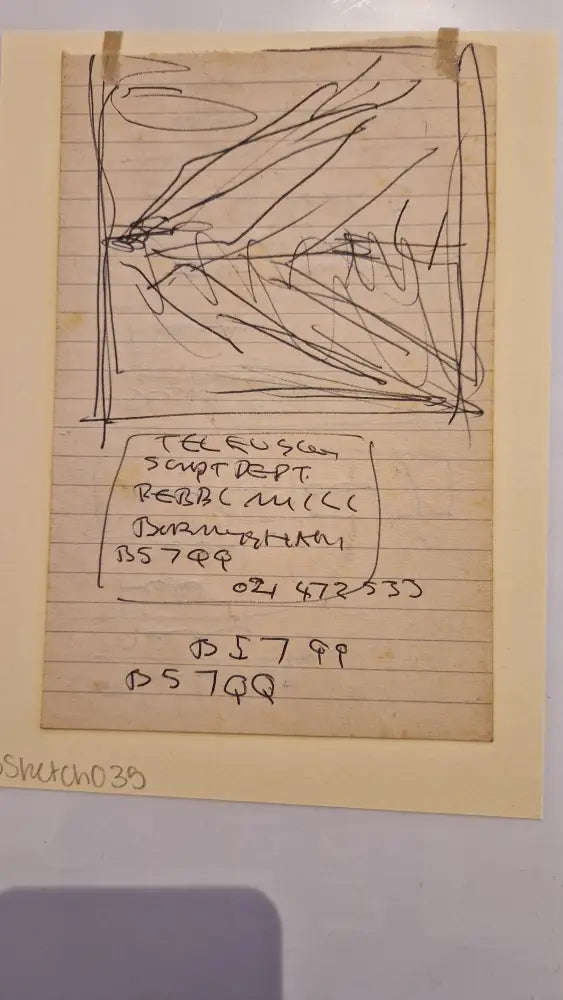 TELEVISION
SCRIPT DEPT.
BEBBC MILL
BIRMINGHAM
B5 7QQ
021 472 533
B5 7 QQ
B5 7QQ
Sketch039